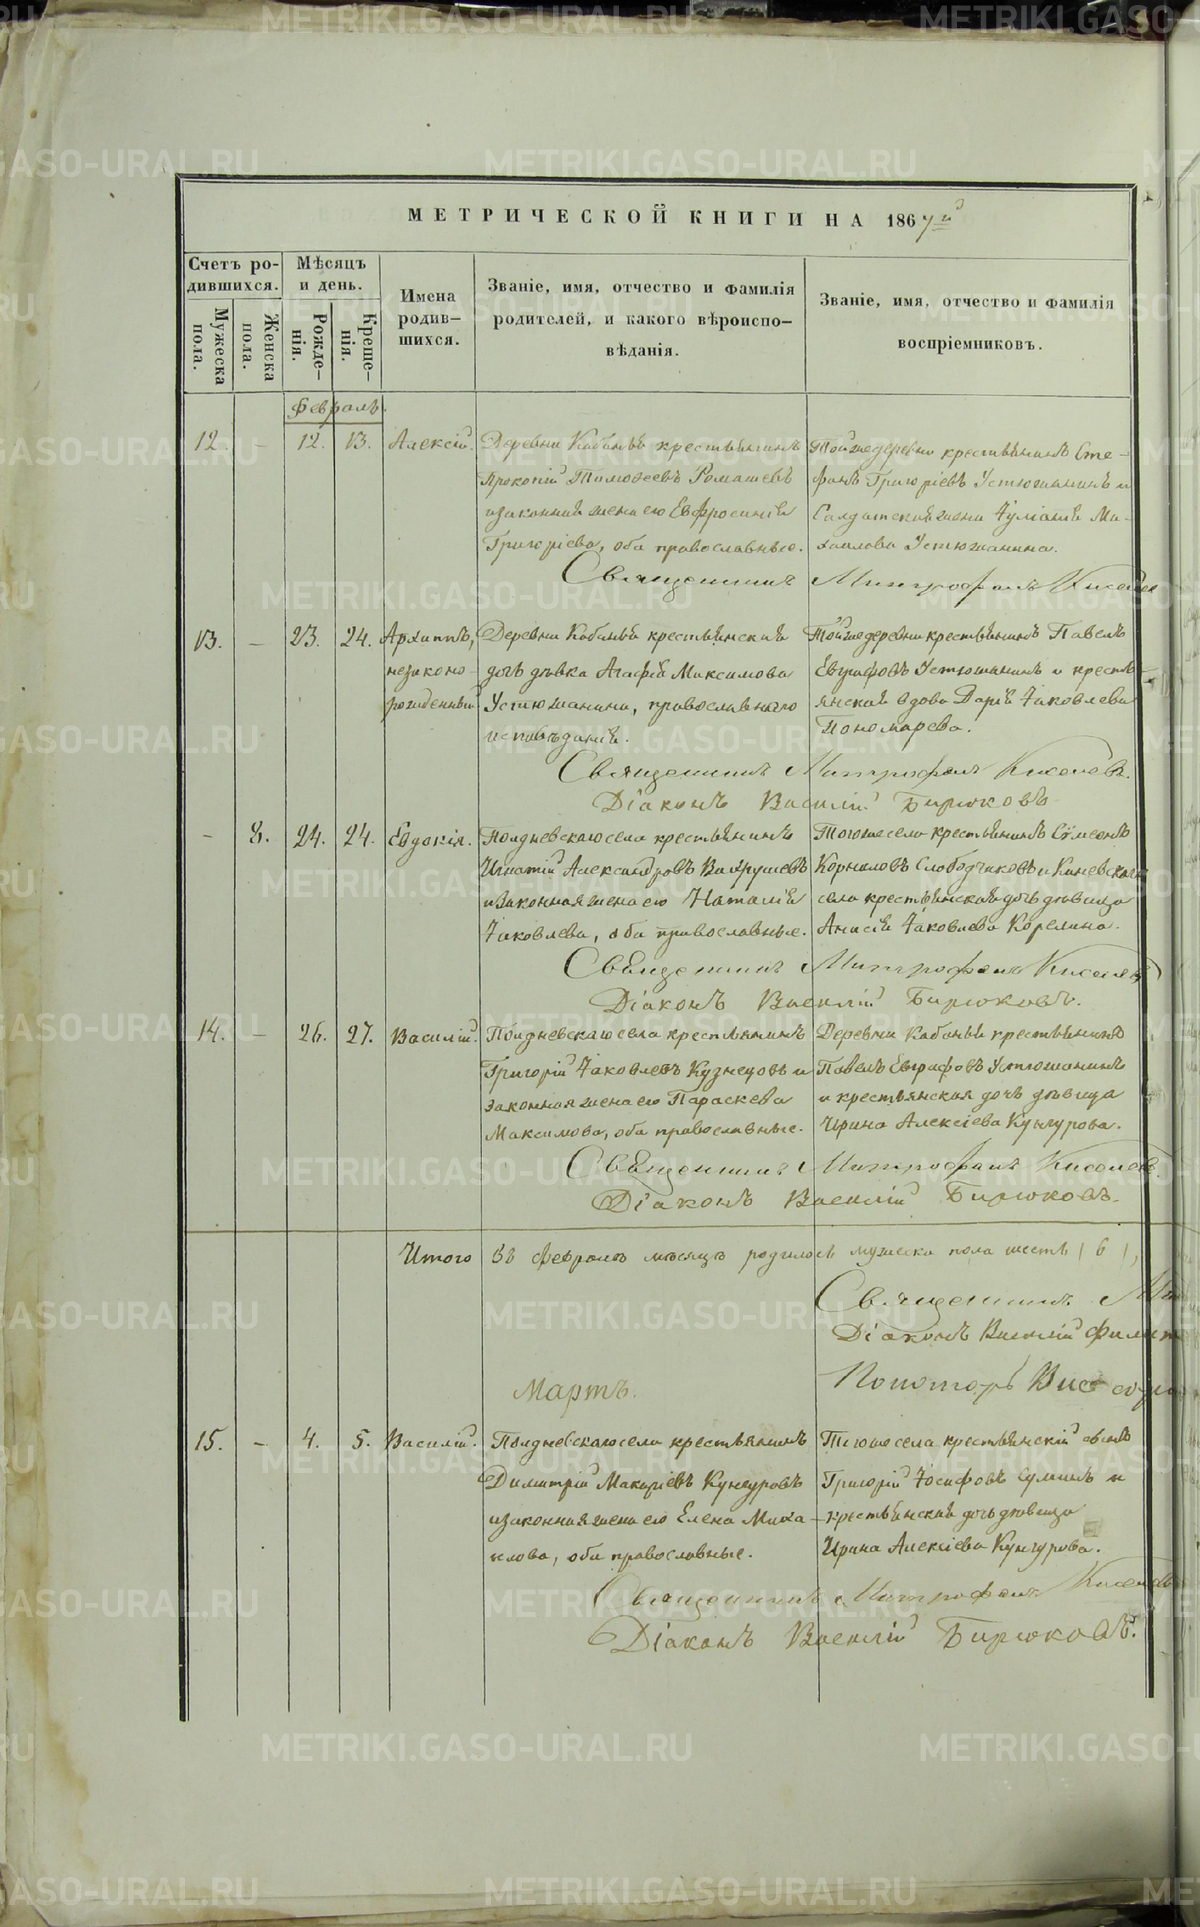 МЕТРИЧЕСКОЙ КНИГИ НА 1867й
Счетъ ро-
дившихся.
Мужеска
пола.
Женска
пола.
Мѣсяцъ
и день.
Рожде-
нія.
Креще-
нія.
Имена
родив-
шихся.
Званіе, имя, отчество и фамилія
родителей, и какого вѣроиспо-
вѣданія.
Званіе, имя, отчество и фамилія
воспріемниковъ.
Февраль.
12. - 12. 13. Алексій.
Деревни Кабаньей крестьянинъ
Прокопій Тимоѳеевъ Ромашевъ
и законная жена его Евфросинія
Григоріева, оба православные.
Тойже деревни крестьянинъ Сте-
фанъ Григоріевъ Устюжанинъ и
Солдатская жена Іуліанія Ми-
хаилова Устюжанина.
Священникъ Митрофанъ Киселев
13. - 23. 24. Архиппъ,
незаконо-
рожденный
Деревни Кабаньей крестьянская
дочь дѣвка Агафія Максимова
Устюжанина, православнаго
исповѣданія.
Тойже деревни крестьянинъ Павелъ
Евграфовъ Устюжанинъ и кресть-
янская вдова Дарія Іаковлева
Пономарева.
Священникъ Митрофанъ Киселевъ.
Діаконъ Василій Бирюковъ
- 8. 24. 24. Евдокія.
Полдневскаго села крестьянинъ
Игнатій Александровъ Вахрушевъ
и законная жена его Наталія
Іаковлева, оба православные.
Тогоже села крестьянинъ Сѵмеонъ
Корниловъ Слободчиковъ и
села крестьянская дочь дѣвица
Анисія Іаковлева Корелина.
Священникъ Митрофанъ Киселевъ
Діаконъ Василій Бирюковъ.
14. - 26. 27. Василій.
Полдневскаго села крестьянинъ
Григорій Іаковлевъ Кузнецовъ и
законная жена его Параскева
Максимова, оба православные.
Деревни Кабаньей крестьянинъ
Павелъ Евграфовъ Устюжанинъ
и крестьянская дочь дѣвица
Ирина Алексіева Кунгурова.
Священникъ Митрофанъ Киселевъ
Діаконъ Василій Бирюковъ.
Итого въ февралѣ мѣсяцѣ родилось мужеска пола шесть (6),
Священникъ Ми
Діаконъ Василій
Мартъ.
15. - 4. 5. Василій.
Полдневскаго села крестьянинъ
Димитрій Макаріевъ Кунгуровъ
и законная жена его Елена Миха-
илова, оба православные.
Тогоже села крестьянскій сынъ
Григорій Іосифовъ Суминъ и
крестьянская дочь дѣвица
Ирина Алексіева Кунгурова.
Священникъ Митрофанъ Киселевъ
Діаконъ Василій Бирюковъ.
METRIKI.GASO-URAL.RU